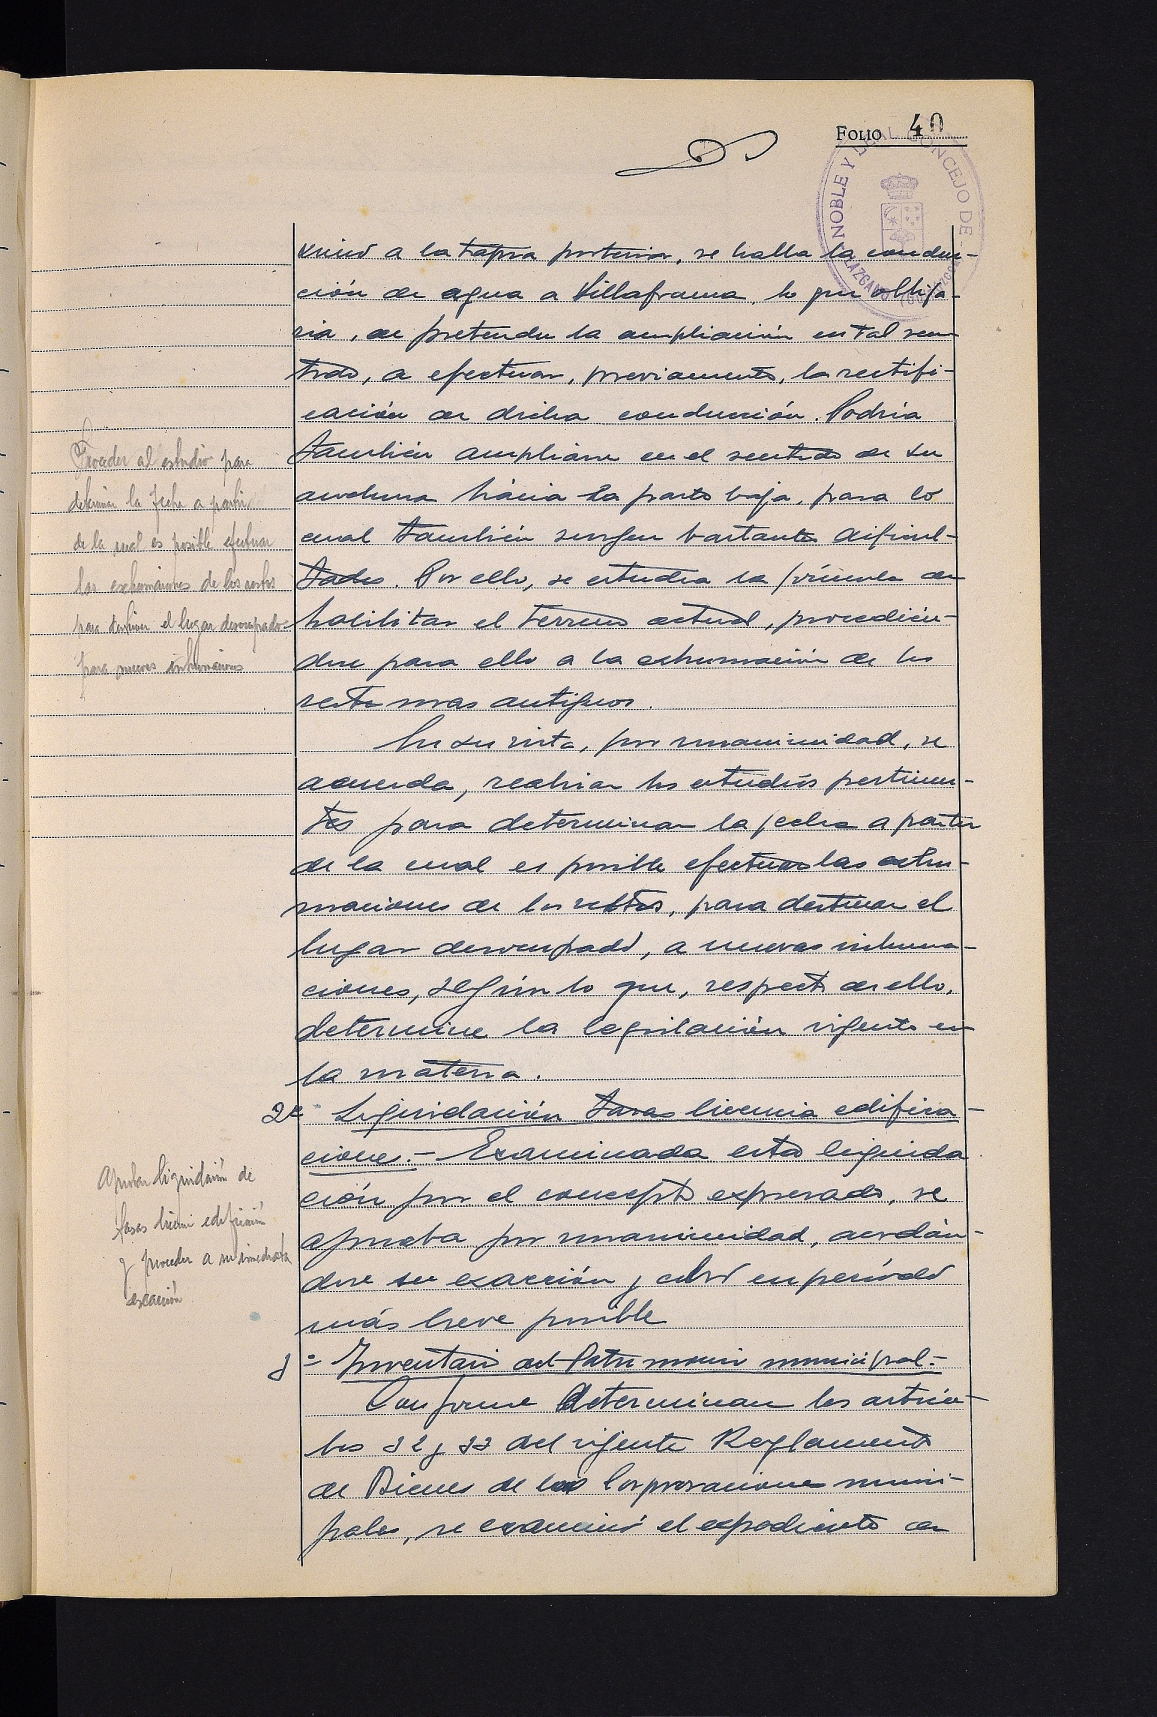 FOLIO 40
NOBLE Y LEAL CONCEJO DE
ximo a la tapia posterior, se halla la conduc-
ción de agua a Villafranca, lo que obliga-
ria, de pretender la ampliación en tal sen-
tido, a efectuar, previamente, la rectifi-
cación de dicha conducción. Podria
tambien ampliarse en el sentido de su
anchura hácia la parte baja, para lo
cual tambien surgen bastantes dificul-
tades. Por ello, se estudia la fórmula de
habilitar el terreno actual, procedién-
dose para ello a la exhumación de los
restos mas antiguos.
En su vista, por unanimidad, se
acuerda, realizar los estudios pertinen-
tes para determinar la fecha a partir
de la cual es posible efectuar las exhu-
maciones de los restos, para destinar el
lugar desocupado, a nuevas inhuma-
ciones, según lo que, respecto de ello,
determine la legislación vigente en
la materia.
Proceder al estudio para
determinar la fecha a partir
de la cual es posible efectuar
las exhumaciones de los restos
para destinar el lugar desocupado
para nuevas inhumaciones
2º Liquidación tasas licencia edifica-
ciones.- Examinada esta liquida
ción por el concepto expresado, se
aprueba por unanimidad, acordán-
dose su exacción y cobro en período
más breve posible
Aprobar liquidación de
tasas licencia edificación
y proceder a su inmediata
exacción
3º- Inventario del Patrimonio municipal.-
Conforme determinan los artícu-
los 32 y 33 del vigente Reglamento
de Bienes de las Corporaciones muni-
pales, se examinó el expediente de